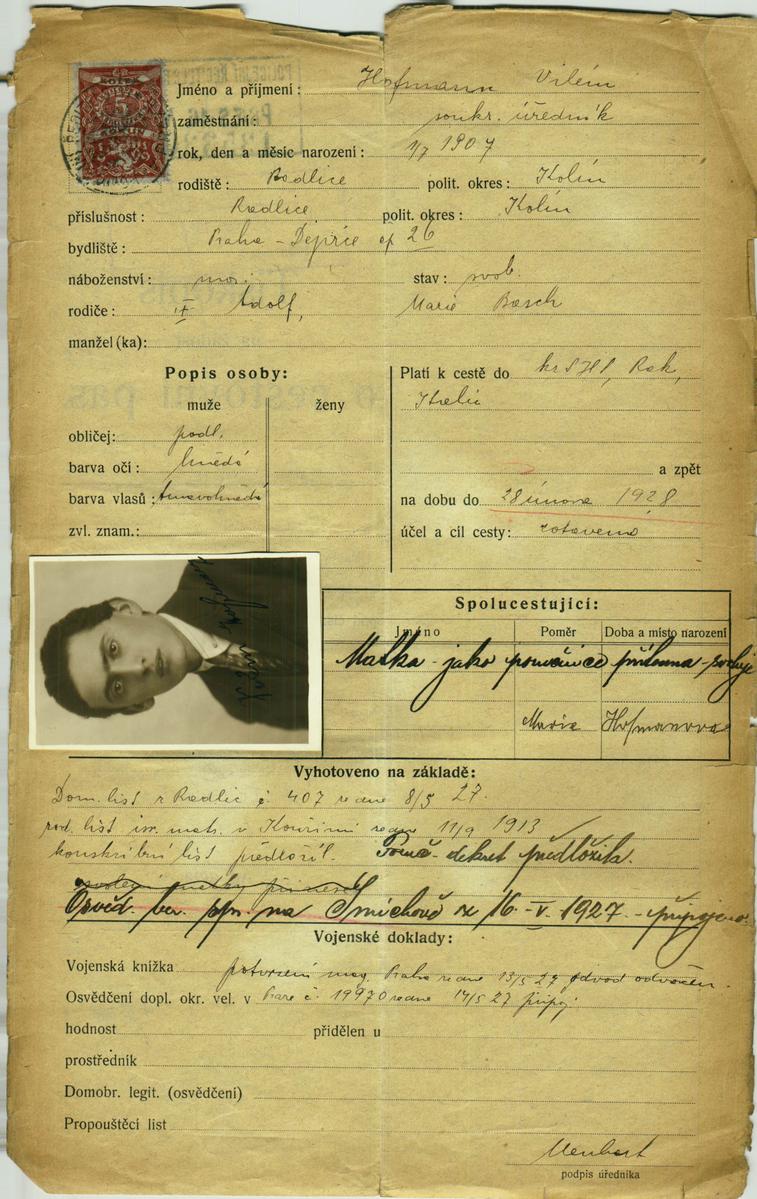 5
Jméno a příjmení: Hofmann Vilém
zaměstnání: soukr. úředník
rok, den a měsíc narození: 1/7 1907
rodiště: Radlice polit. okres: Kolín
příslušnost: Radlice polit. okres: Kolín
bydliště: Praha - čp 26
náboženství: mos. stav: svob.
rodiče: Adolf, Marie Basch
manžel(ka):
Popis osoby:
muže ženy
obličej: podl.
barva očí: hnědé
barva vlasů: tmavohnědé
zvl. znam.:
Platí k cestě do kr SHS, Rak,
Italie
a zpět
na dobu do 28 února 1928
účel a cíl cesty: zotavení
Spolucestující:
Jméno Poměr Doba a místo narození
Matka - jako poručnice přítomna - svoluje
Marie Hofmanova
Vyhotoveno na základě:
Dom. list z Radlic č. 407 ze dne 8/5 27.
rod. list isr. mat. v Kouřimi ze dne 11/9 1913
konskribční list předložil. Poruč. dekret předložila.
svolení matky přinese
Osvěd. ber. spr. na Smíchově ze 16. - V. 1927. - připojeno.
Vojenské doklady:
Vojenská knížka potvrzení mag. Praha ze dne 13/5 27 odvod odveden.
Osvědčení dopl. okr. vel. v Praze č. 19970 ze dne 14/5 27 připoj.
hodnost přidělen u
prostředník
Domobr. legit. (osvědčení)
Propouštěcí list
podpis úředníka